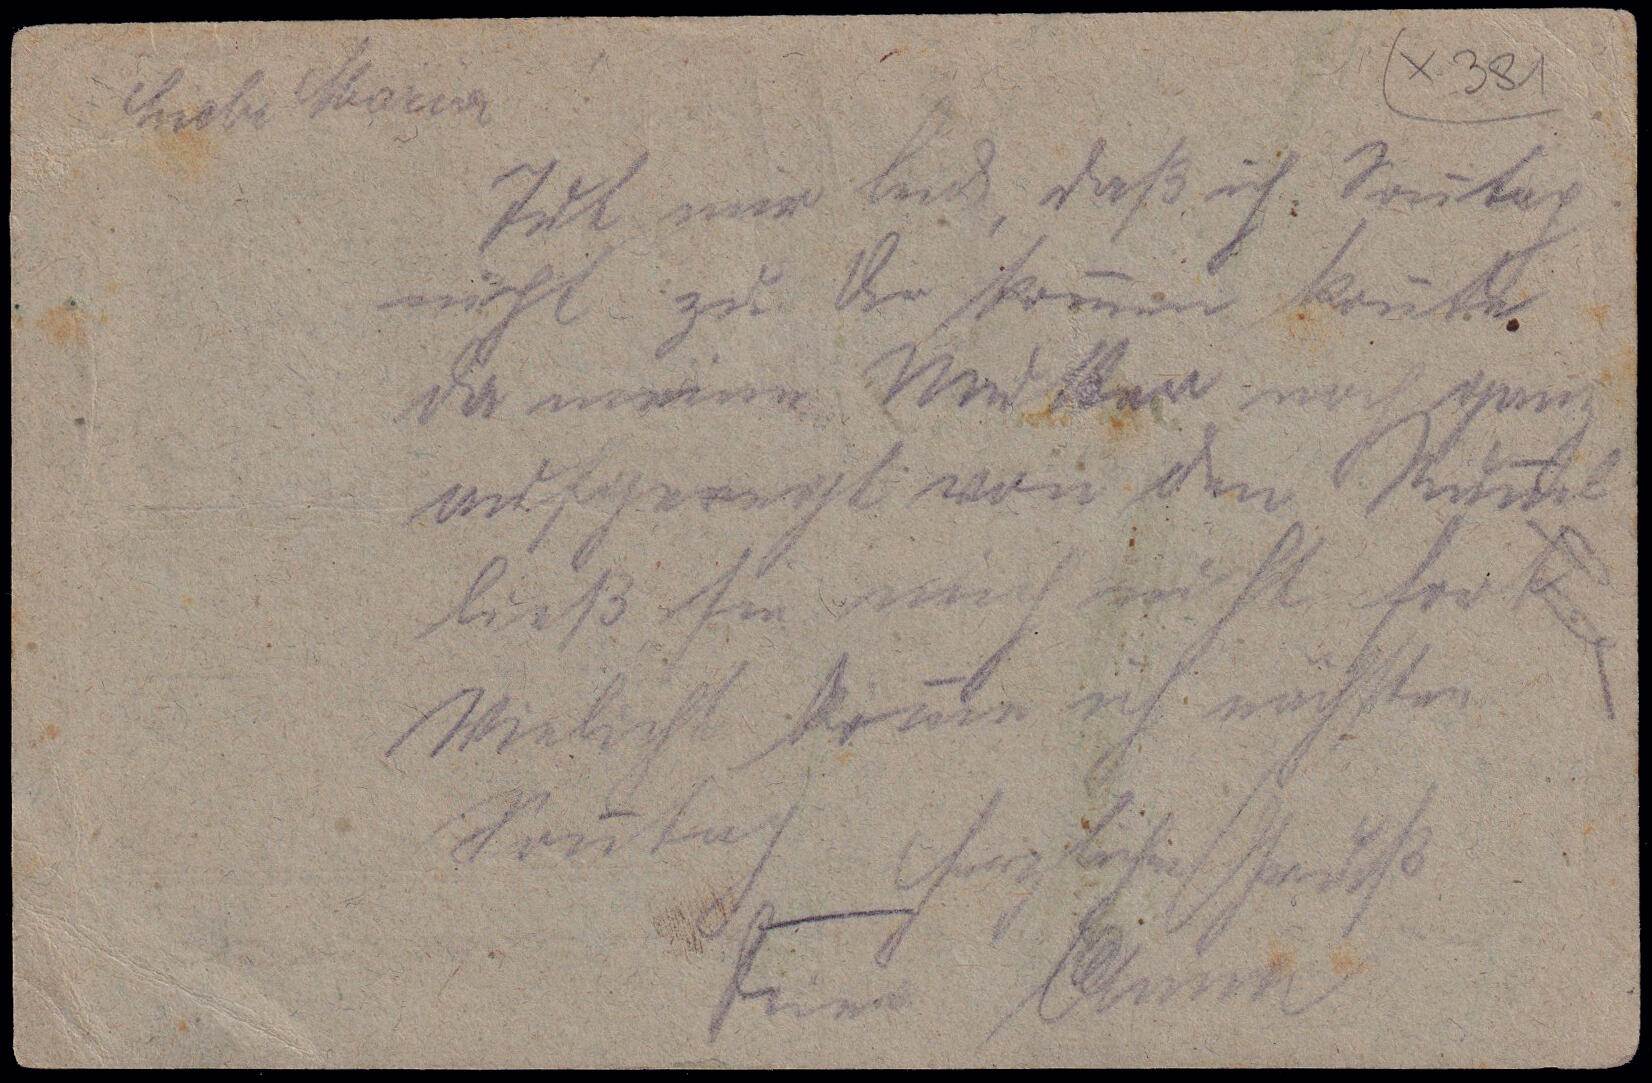 x 381
Liebe Maria
Tut mir leid, daß ich Son̅tag
nicht zu Dir kom̅en kon̅te
da meine Mutter noch ganz
aufgeregt von den
ließ sie mich nicht fort
Vieleicht kom̅e ich nächsten
Son̅tag herzlichen Gruß
Anna